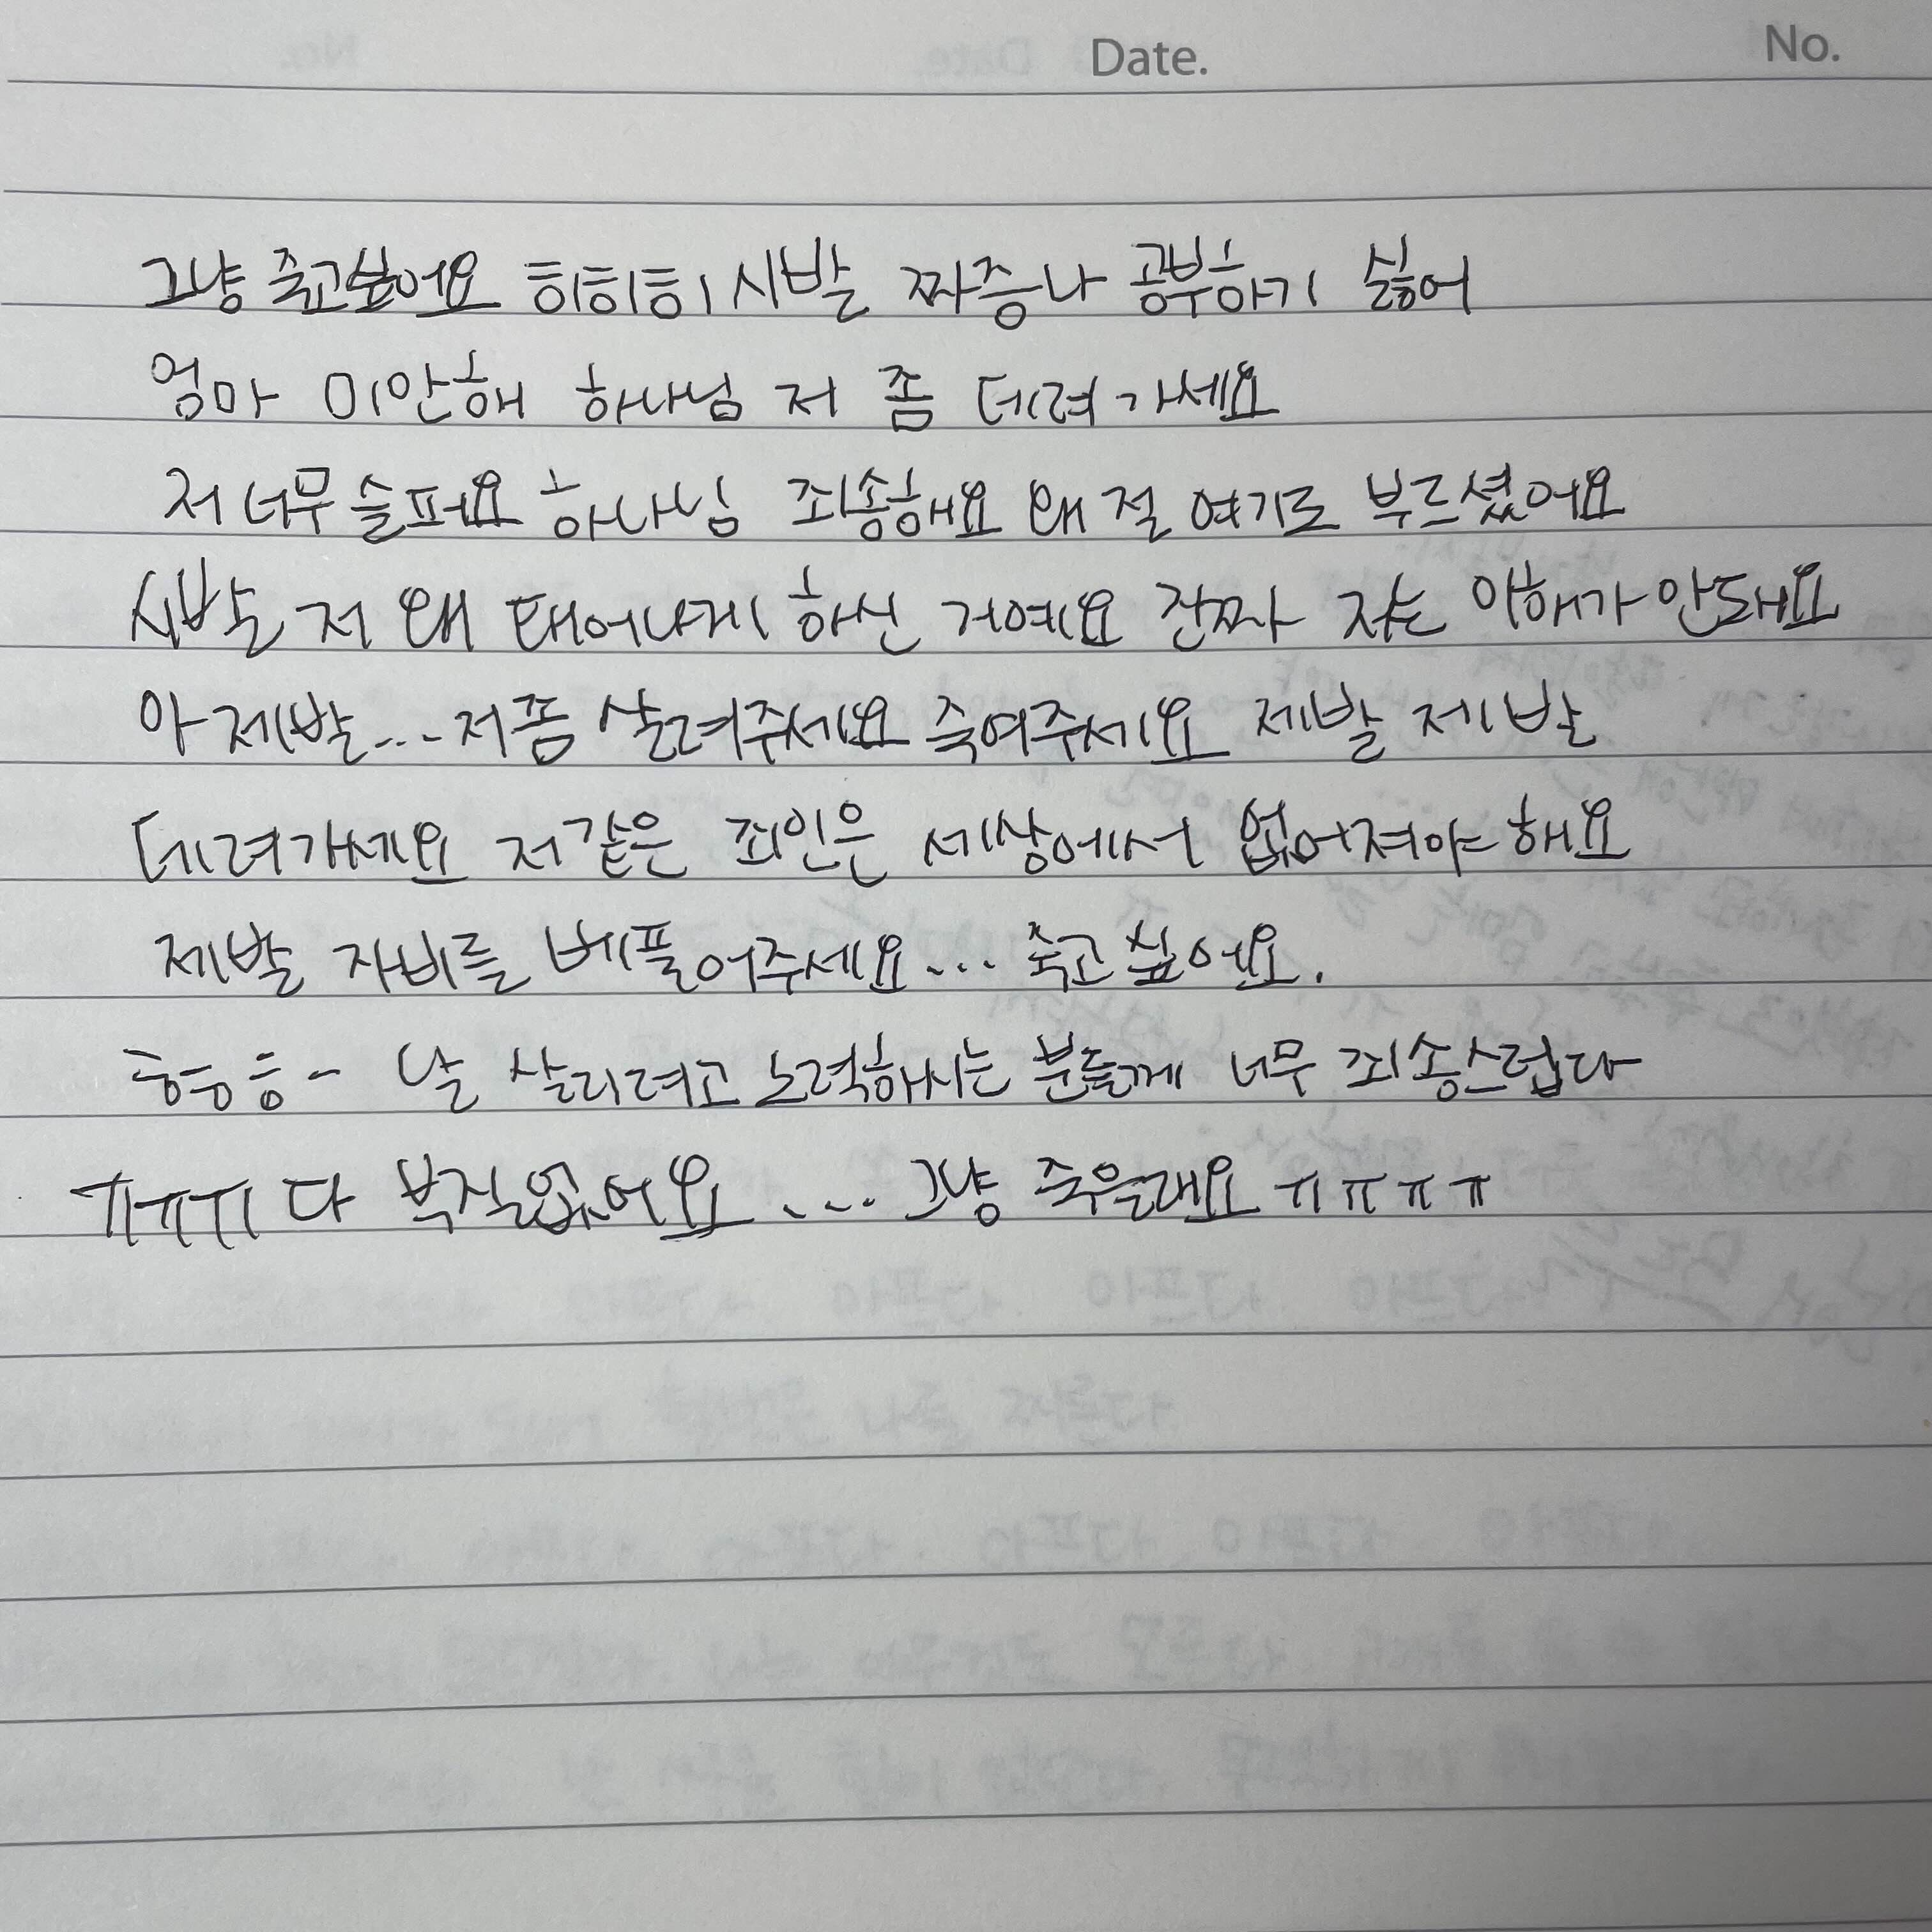 Date. No.
그냥 죽고싶어요 히히히 시발 짜증나 공부하기 싫어
엄마 미안해 하나님 저 좀 데려가세요
저 너무 슬퍼요 하나님 죄송해요 왜 절 여기로 부르셨어요
시발 저 왜 태어나게 하신 거예요 진짜 저는 이해가 안돼요
아 제발... 저좀 살려주세요 죽여주세요 제발 제발
데려가세요 저같은 죄인은 세상에서 없어져야 해요
제발 자비를 베풀어주세요... 죽고 싶어요.
흐응응- 날 살리려고 노력하시는 분들께 너무 죄송스럽다
ㅠㅠㅠ 다 부질없어요 .... 그냥 죽을래요 ㅠㅠㅠㅠ